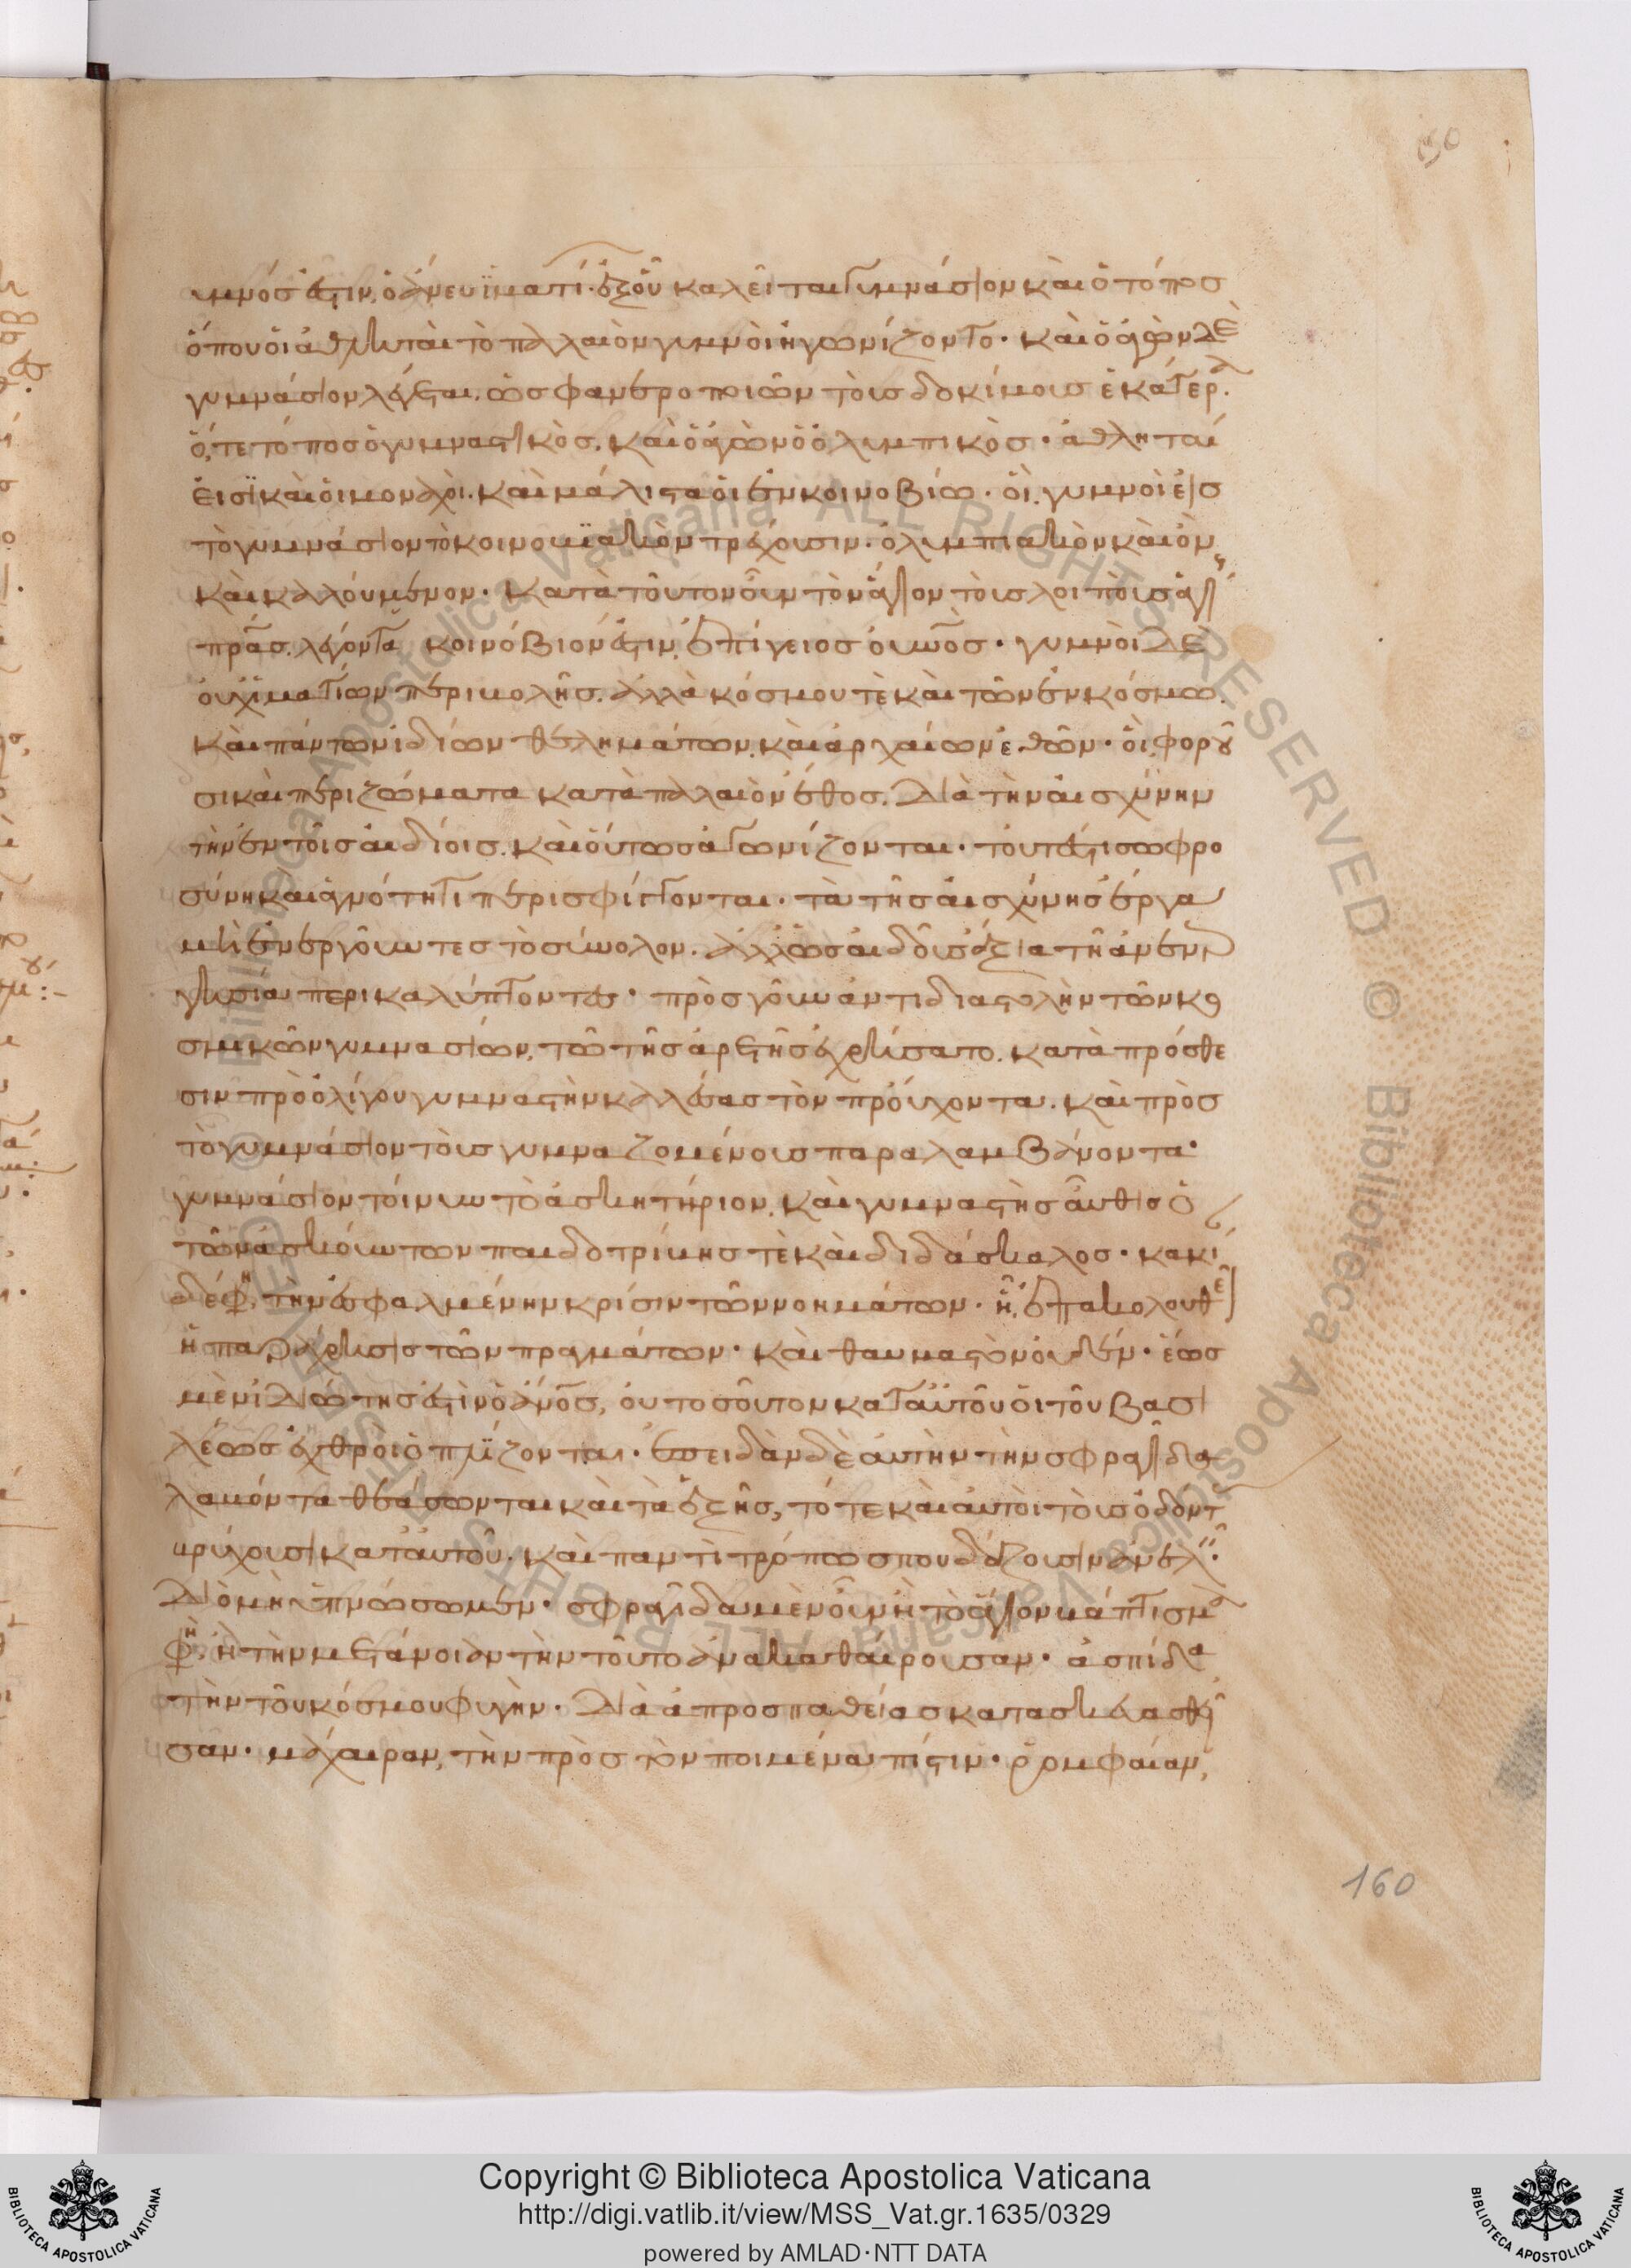 υμνός ἐστιν, ὁ ἄνευ ἱματί· ἐξοῦ καλεῖται γυμνάσιον καὶ ὁ τόπος
ὅπου οἱ ἀθληταὶ τὸ παλαιὸν γυμνοὶ ἠγωνίζοντο· καὶ ὁ ἀγὼν δὲ
γυμνάσιον λέγεται, ὡς φανεροποιῶν τοὺς δοκίμους ἑκατερ
ὅ, τε τόπος ὁ γυμναστικὸς, καὶ ὁ ἀγὼν ὁ ὀλυμπικὸς· ἀθληταί
εἰσὶ καὶ οἱ μοναχοὶ· καὶ μάλιστα οἱ ἐν κοινοβίω· οἳ γυμνοὶ εἰς
τὸ γυμνάσιον τὸ κοινοβιακὸν τρέχουσιν· ὀλυμπιακὸν καὶ ὂν
καὶ καλούμενον· κατὰ τοῦτον οὖν τὸν ἅγιον τοῖς λοιποῖς ἁγι
πρας λέγοντα κοινόβιόν ἐστιν, ἐπίγειος οὐνος· γυμνοὶ δὲ
οὐχ ἱματίων περιβολῆς· ἀλλὰ κόσμου τὲ καὶ τῶν ἐν κόσμω
καὶ πάντων ἰδίων θελημάτων, καὶ ἀρχαίων ἐθῶν· οἳ φορου
σι καὶ περιζώματα κατὰ παλαιὸν ἔθος, διὰ τὴν αἰσχύνην
τὴν ἐν τοῖς αἰδίοις· καὶ οὕτως ἀγωνίζονται· τουτέστι σωφρο
σύνη καὶ ἁγνότητι περισφίγγονται· τὰ τῆς αἰσχύνης ἔργα
μὴ ἐνεργοῦντες τὸ σύνολον· ἀλλ ὡς αἰδοῖς ἄξια τῆ ἀνεν
περικαλύπτοντες· πρὸς γοῦν ἀντιδιαστολὴν τῶν κο
σμικῶν γυμνασίων, τῶ τῆς ἀρετῆς ἐχρήσατο· κατὰ πρόσθε
σιν πρὸ ὀλίγου γυμναστὴν καλέσας τὸν προύχοντα· καὶ πρὸς
τὸ γυμνάσιον τοὺς γυμναζομένους παραλαμβάνοντα·
γυμνάσιον τοίνυν τὸ ἀσκητήριον, καὶ γυμναστὴς αὖθις ὁ
τῶν ἀσκούντων παιδοτρίβης τὲ καὶ διδάσκαλος· κακί
δέ φη, τὴν ἐσφαλμένην κρίσιν τῶν νοημάτων· ἧ ἐπακολουθεῖ
ἡ παράχρησις τῶν πραγμάτων· καὶ θαυμαστὸν οὐδέν· ἕως
μὲν ἰδιώτης ἐστὶν ὁ ἀνος, οὐ τοσοῦτον κατ αὐτοῦ οἱ τοῦ βασι
λέως ἐχθροὶ ὁπλίζονται· ἐπειδὰν δὲ αὐτὴν τὴν σφραγῖδα
λαβόντα θεάσωνται καὶ τὰ ἑξῆς, τότε καὶ αὐτοὶ τοὺς ὀδόντ
βρύχουσι κατ αὐτοῦ· καὶ παντὶ τρόπω σπουδάζουσιν ἀνελ
διὸ μὴ ὑπνώσωμεν· σφραγῖδα μὲν οὖν ἢ τὸ ἅγιον βάπτισμα
φη, ἢ τὴν μετάνοιαν τὴν τοῦτο ἀνακαθαίρουσαν· ἀσπίδα
τὴν τοῦ κόσμου φυγὴν· διὰ ἀπροσπαθείας κατασκευασθεῖ
σαν· μάχαιραν, τὴν πρὸς τὸν ποιμένα πίστιν· ῥομφαίαν,
160
Copyright © Biblioteca Apostolica Vaticana
http://digi.vatlib.it/view/MSS_Vat.gr.1635/0329
powered by AMLAD·NTT DATA